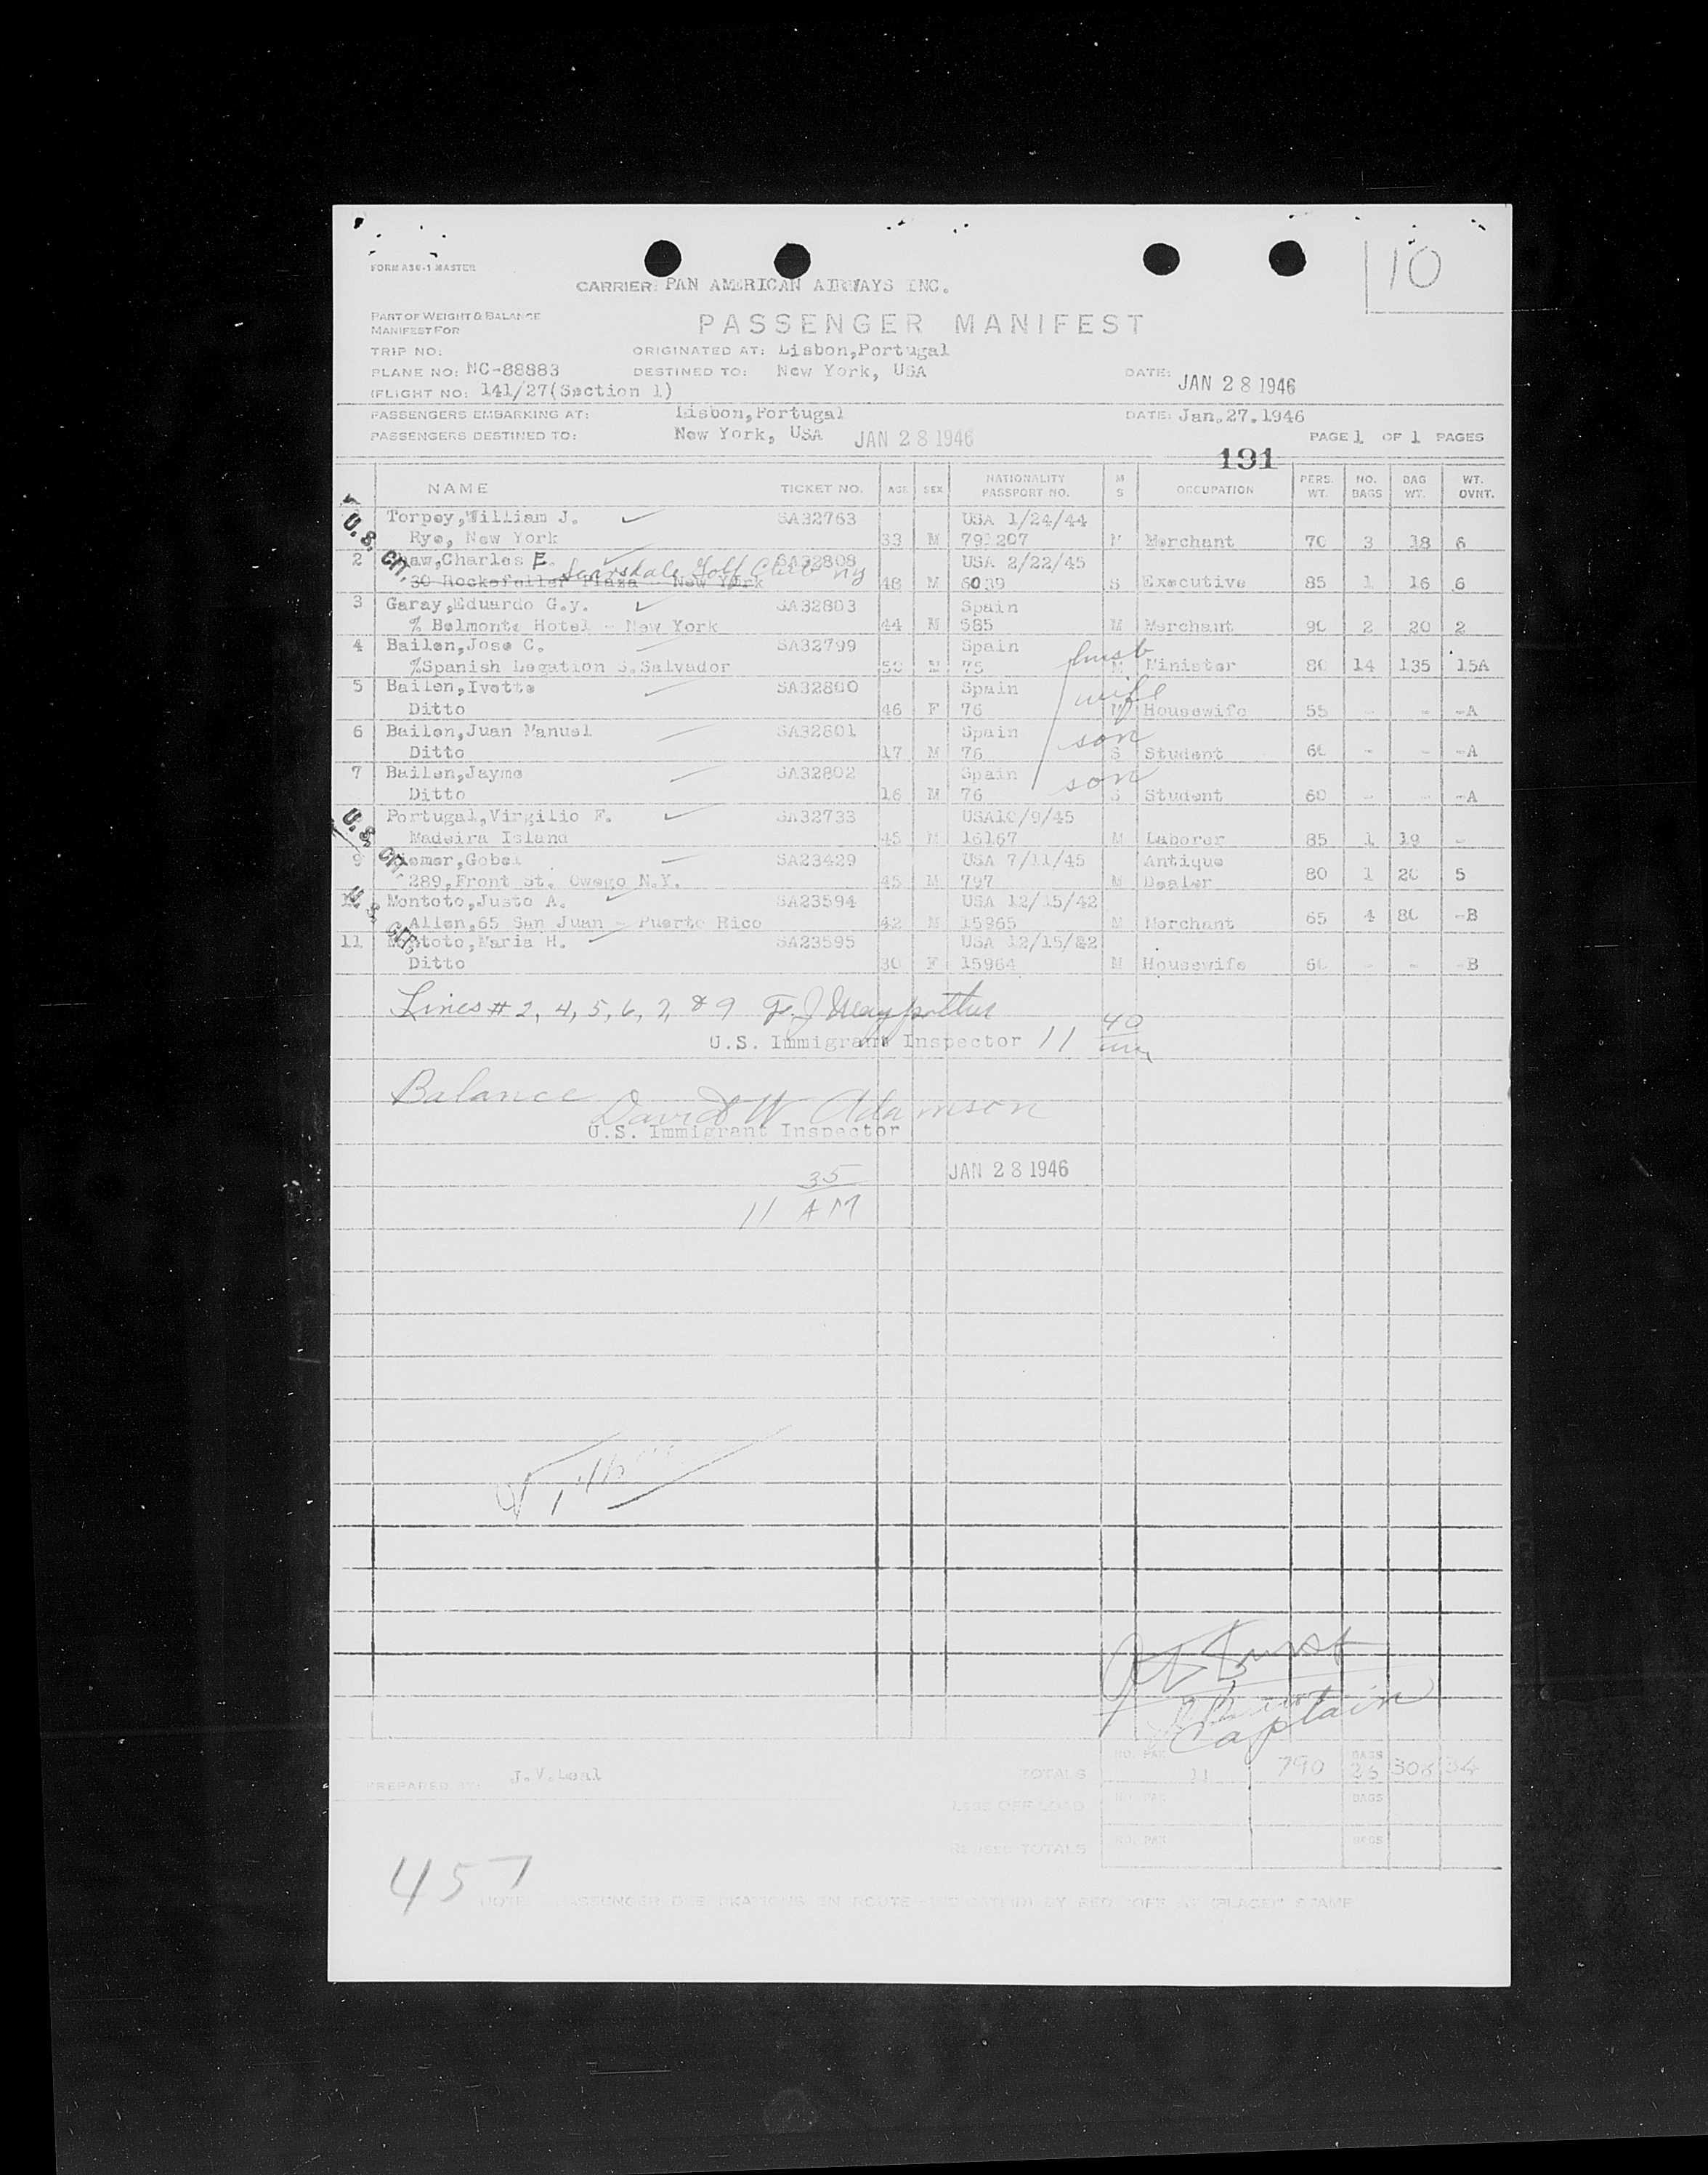 FORM A36-1 MASTER
10
CARRIER: PAN AMERICAN AIRWAYS INC.
PART OF WEIGHT & BALANCE
MANIFEST FOR
PASSENGER MANIFEST
TRIP NO:
ORIGINATED AT: Lisbon,Portugal
PLANE NO: NC-88883
DESTINED TO: New York, USA
DATE: JAN 28 1946
FLIGHT NO: 141/27(Section 1)
PASSENGERS EMBARKING AT: Lisbon,Portugal
DATE: Jan.27.1946
PASSENGERS DESTINED TO: New York, USA JAN 28 1946
PAGE 1 OF 1 PAGES
191
NAME TICKET NO. AGE SEX NATIONALITY PASSPORT NO. M S OCCUPATION PERS. WT. NO. BAGS BAG WT. WT. OVNT.
U.S. CIT.
Torpey,William J. SA32763 USA 1/24/44
Rye, New York 33 M 791207 M Merchant 70 3 18 6
2 aw,Charles E. SA32808 USA 2/22/45
30 Rockefeller Plaza - New York Scarsdale Golf Club NY 48 M 6039 S Executive 85 1 16 6
3 Garay,Eduardo G.y. SA32803 Spain
% Belmonte Hotel - New York 44 M 585 M Merchant 90 2 20 2
4 Bailen,Jose C. SA32799 Spain husb
%Spanish Legation S.Salvador 50 M 75 M Minister 80 14 135 15A
5 Bailen,Ivette SA32800 Spain wife
Ditto 46 F 76 M Housewife 55 - - -A
6 Bailen,Juan Manuel SA32801 Spain son
Ditto 17 M 76 S Student 60 - - -A
7 Bailen,Jayme SA32802 Spain son
Ditto 16 M 76 S Student 60 - - -A
U.S. CIT.
Portugal,Virgilio F. SA32733 USA10/9/45
Madeira Island 45 M 16167 M Laborer 85 1 19 -
9 iemer,Gobel SA23429 USA 7/11/45 Antique
289,Front St. Owego N.Y. 45 M 797 M Dealer 80 1 20 5
U.S. CIT.
Montoto,Justo A. SA23594 USA 12/15/42
Allen,65 San Juan - Puerto Rico 42 M 15965 M Merchant 65 4 80 -B
11 Montoto,Maria H. SA23595 USA 12/15/42
Ditto 30 F 15964 M Housewife 60 - - -B
Lines # 2, 4, 5, 6, 7, & 9
U.S. Immigrant Inspector 11 40 am
Balance David W Adamson
U.S. Immigrant Inspector
JAN 28 1946
11 35 AM
Captain
PREPARED BY: J.V.Leal
TOTALS NO. PAS 11 790 BAGS 26 308 34
LESS OFF LOAD NO. PAS BAGS
REVISED TOTALS NO. PAS BAGS
457